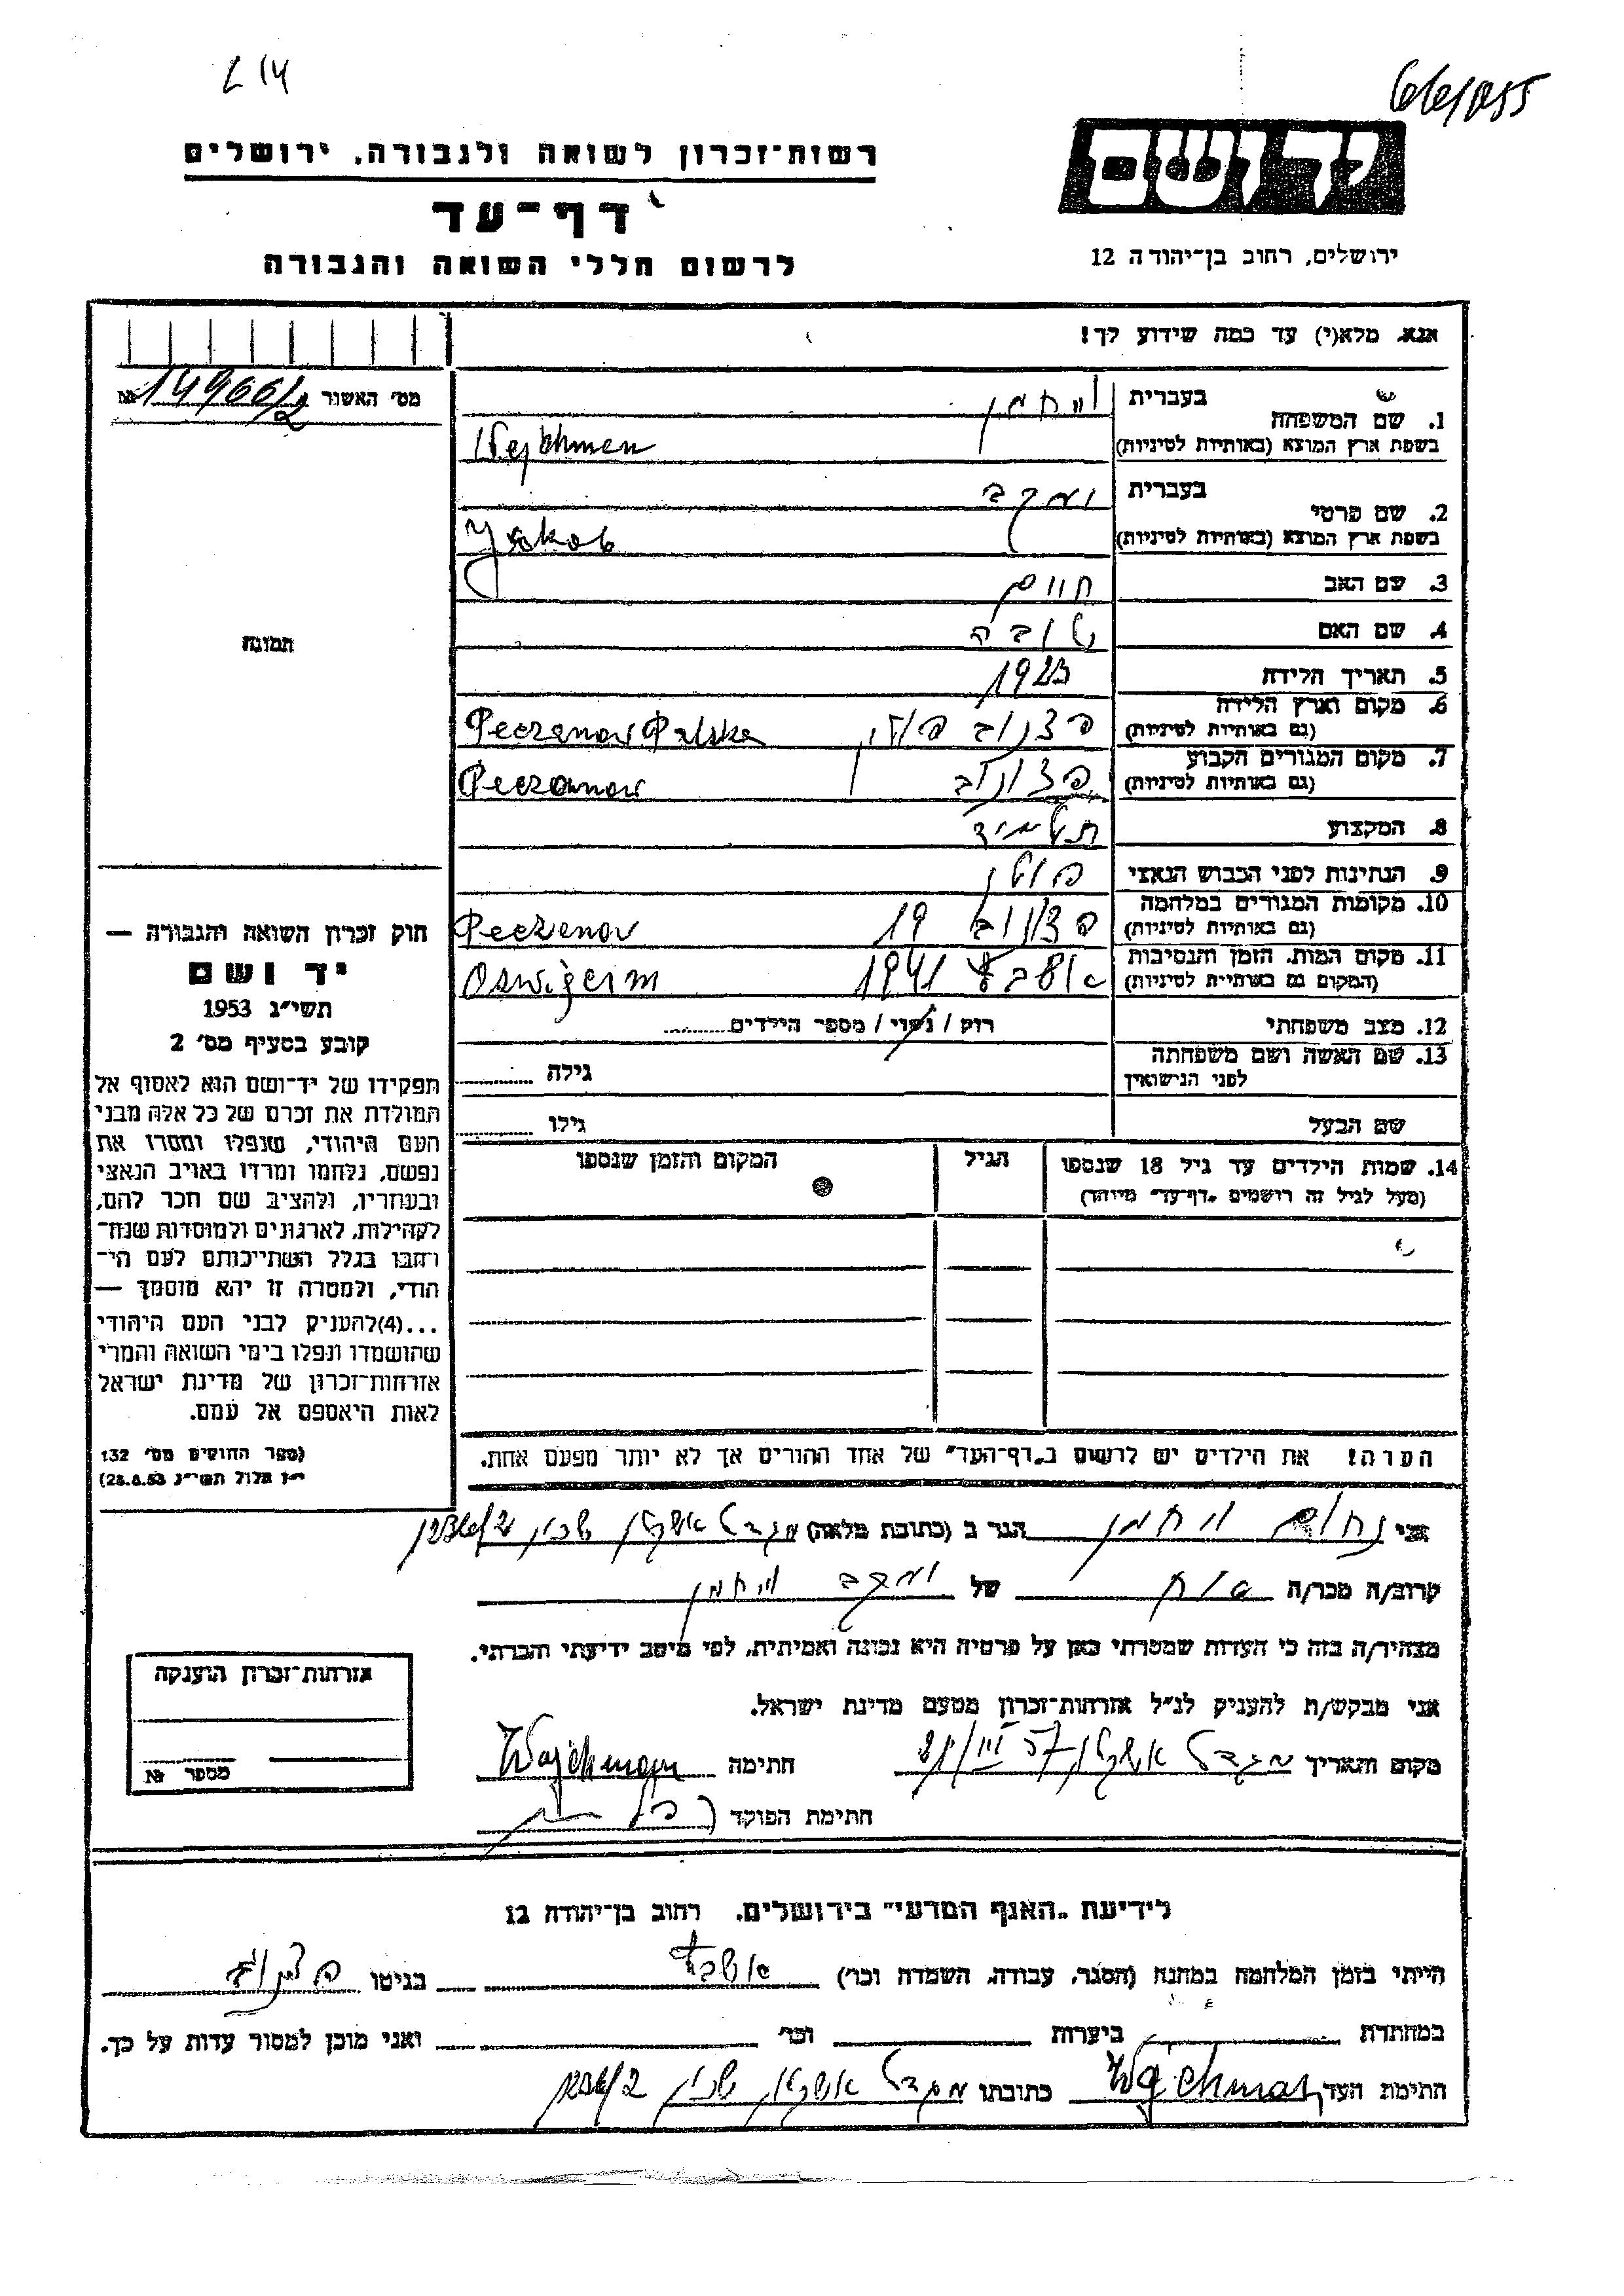 L 14
66/055
יד ושם
ירושלים, רחוב בן־יהודה 12
רשות־זכרון לשואה ולגבורה, ירושלים
דף־עד
לרשום חללי השואה והגבורה
אנא, מלא(י) עד כמה שידוע לך!
מס׳ האשור № 14966/2
1. שם המשפחה בעברית וויחמן
בשפת ארץ המוצא (באותיות לטיניות) Wejchmen
2. שם פרטי בעברית יעקב
בשפת ארץ המוצא (באותיות לטיניות) Jakob
3. שם האב חיים
4. שם האם טובה
5. תאריך הלידה 1923
6. מקום וארץ הלידה
(גם באותיות לטיניות) פצנוב פולין Peczenov Polska
7. מקום המגורים הקבוע
(גם באותיות לטיניות) פצונוב Peczonow
8. המקצוע תלמיד
9. הנתינות לפני הכבוש הנאצי פולין
10. מקומות המגורים במלחמה
(גם באותיות לטיניות) פצנוב 19 Peczenov
11. מקום המות, הזמן והנסיבות
(המקום גם באותיות לטיניות) 1941 Oswigcim
12. מצב משפחתי רוק / נשוי / מספר הילדים
13. שם האשה ושם משפחתה
לפני הנישואין גילה
שם הבעל גילו
14. שמות הילדים עד גיל 18 שנספו הגיל המקום והזמן שנספו
(מעל לגיל זה רושמים „דף־עד״ מיוחד)
הערה! את הילדים יש לרשום ב„דף־העד״ של אחד ההורים אך לא יותר מפעם אחת.
תמונה
חוק זכרון השואה והגבורה —
יד ושם
תשי״ג 1953
קובע בסעיף מס׳ 2
תפקידו של יד־ושם הוא לאסוף אל
המולדת את זכרם של כל אלה מבני
העם היהודי, שנפלו ומסרו את
נפשם, נלחמו ומרדו באויב הנאצי
ובעוזריו, ולהציב שם וזכר להם,
לקהילות, לארגונים ולמוסדות שנח־
רבו בגלל השתייכותם לעם הי־
הודי, ולמטרה זו יהא מוסמך —
...(4)להעניק לבני העם היהודי
שהושמדו ונפלו בימי השואה והמרי
אזרחות־זכרון של מדינת ישראל
לאות היאספם אל עמם.
(ספר החוקים מס׳ 132
י״ז אלול תשי״ג 28.8.53)
אני נחום וויחמן הגר ב (כתובת מלאה) מגדל אשקלון שכון
קרוב/ה מכר/ה אח של יעקב וויחמן
מצהיר/ה בזה כי העדות שמסרתי כאן על פרטיה היא נכונה ואמיתית, לפי מיטב ידיעתי והכרתי.
אני מבקש/ת להעניק לנ״ל אזרחות־זכרון מטעם מדינת ישראל.
מקום ותאריך מגדל אשקלון חתימה Wajchman
חתימת הפוקד
אזרחות־זכרון הוענקה
מספר №
לידיעת „האגף המדעי״ בירושלים, רחוב בן־יהודה 12
הייתי בזמן המלחמה במחנה (הסגר, עבודה, השמדה וכו׳) בגיטו פצנוב
במחתרת ביערות וכו׳ ואני מוכן למסור עדות על כך.
חתימת העד Wajchman כתובתו מגדל אשקלון שכון